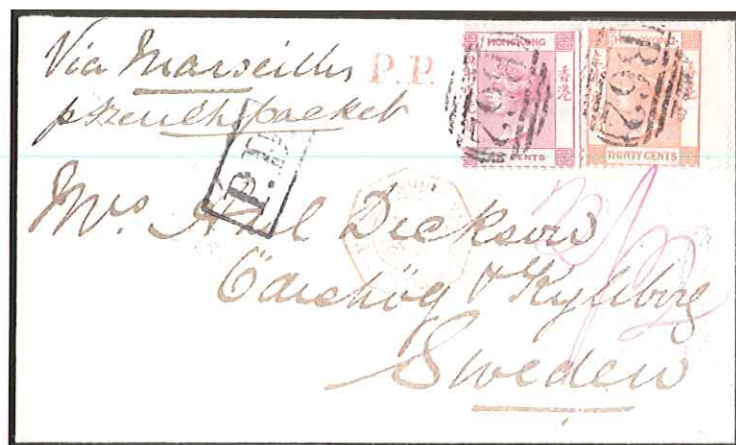 Via Marseilles
P.P.
p French packet
P.D.
HONGKONG
香港
CENTS
B62
THIRTY CENTS
B62
Mrs. Axel Dickson
Kyleberg
Sweden